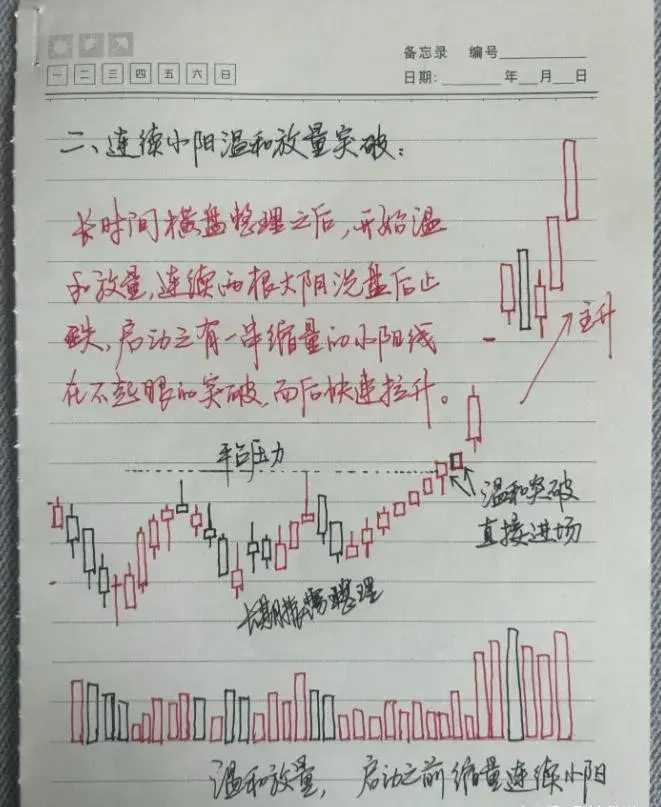 备忘录 编号
一 二 三 四 五 六 日
日期: 年 月 日
二、连续小阳温和放量突破：
长时间横盘整理之后，开始温
和放量，连续两根大阳洗盘后止
跌，启动之有一串缩量的小阳线
在不起眼的突破，而后快速拉升。
主升
平台压力
温和突破
直接进场
长期横盘整理
温和放量，启动之前缩量连续小阳